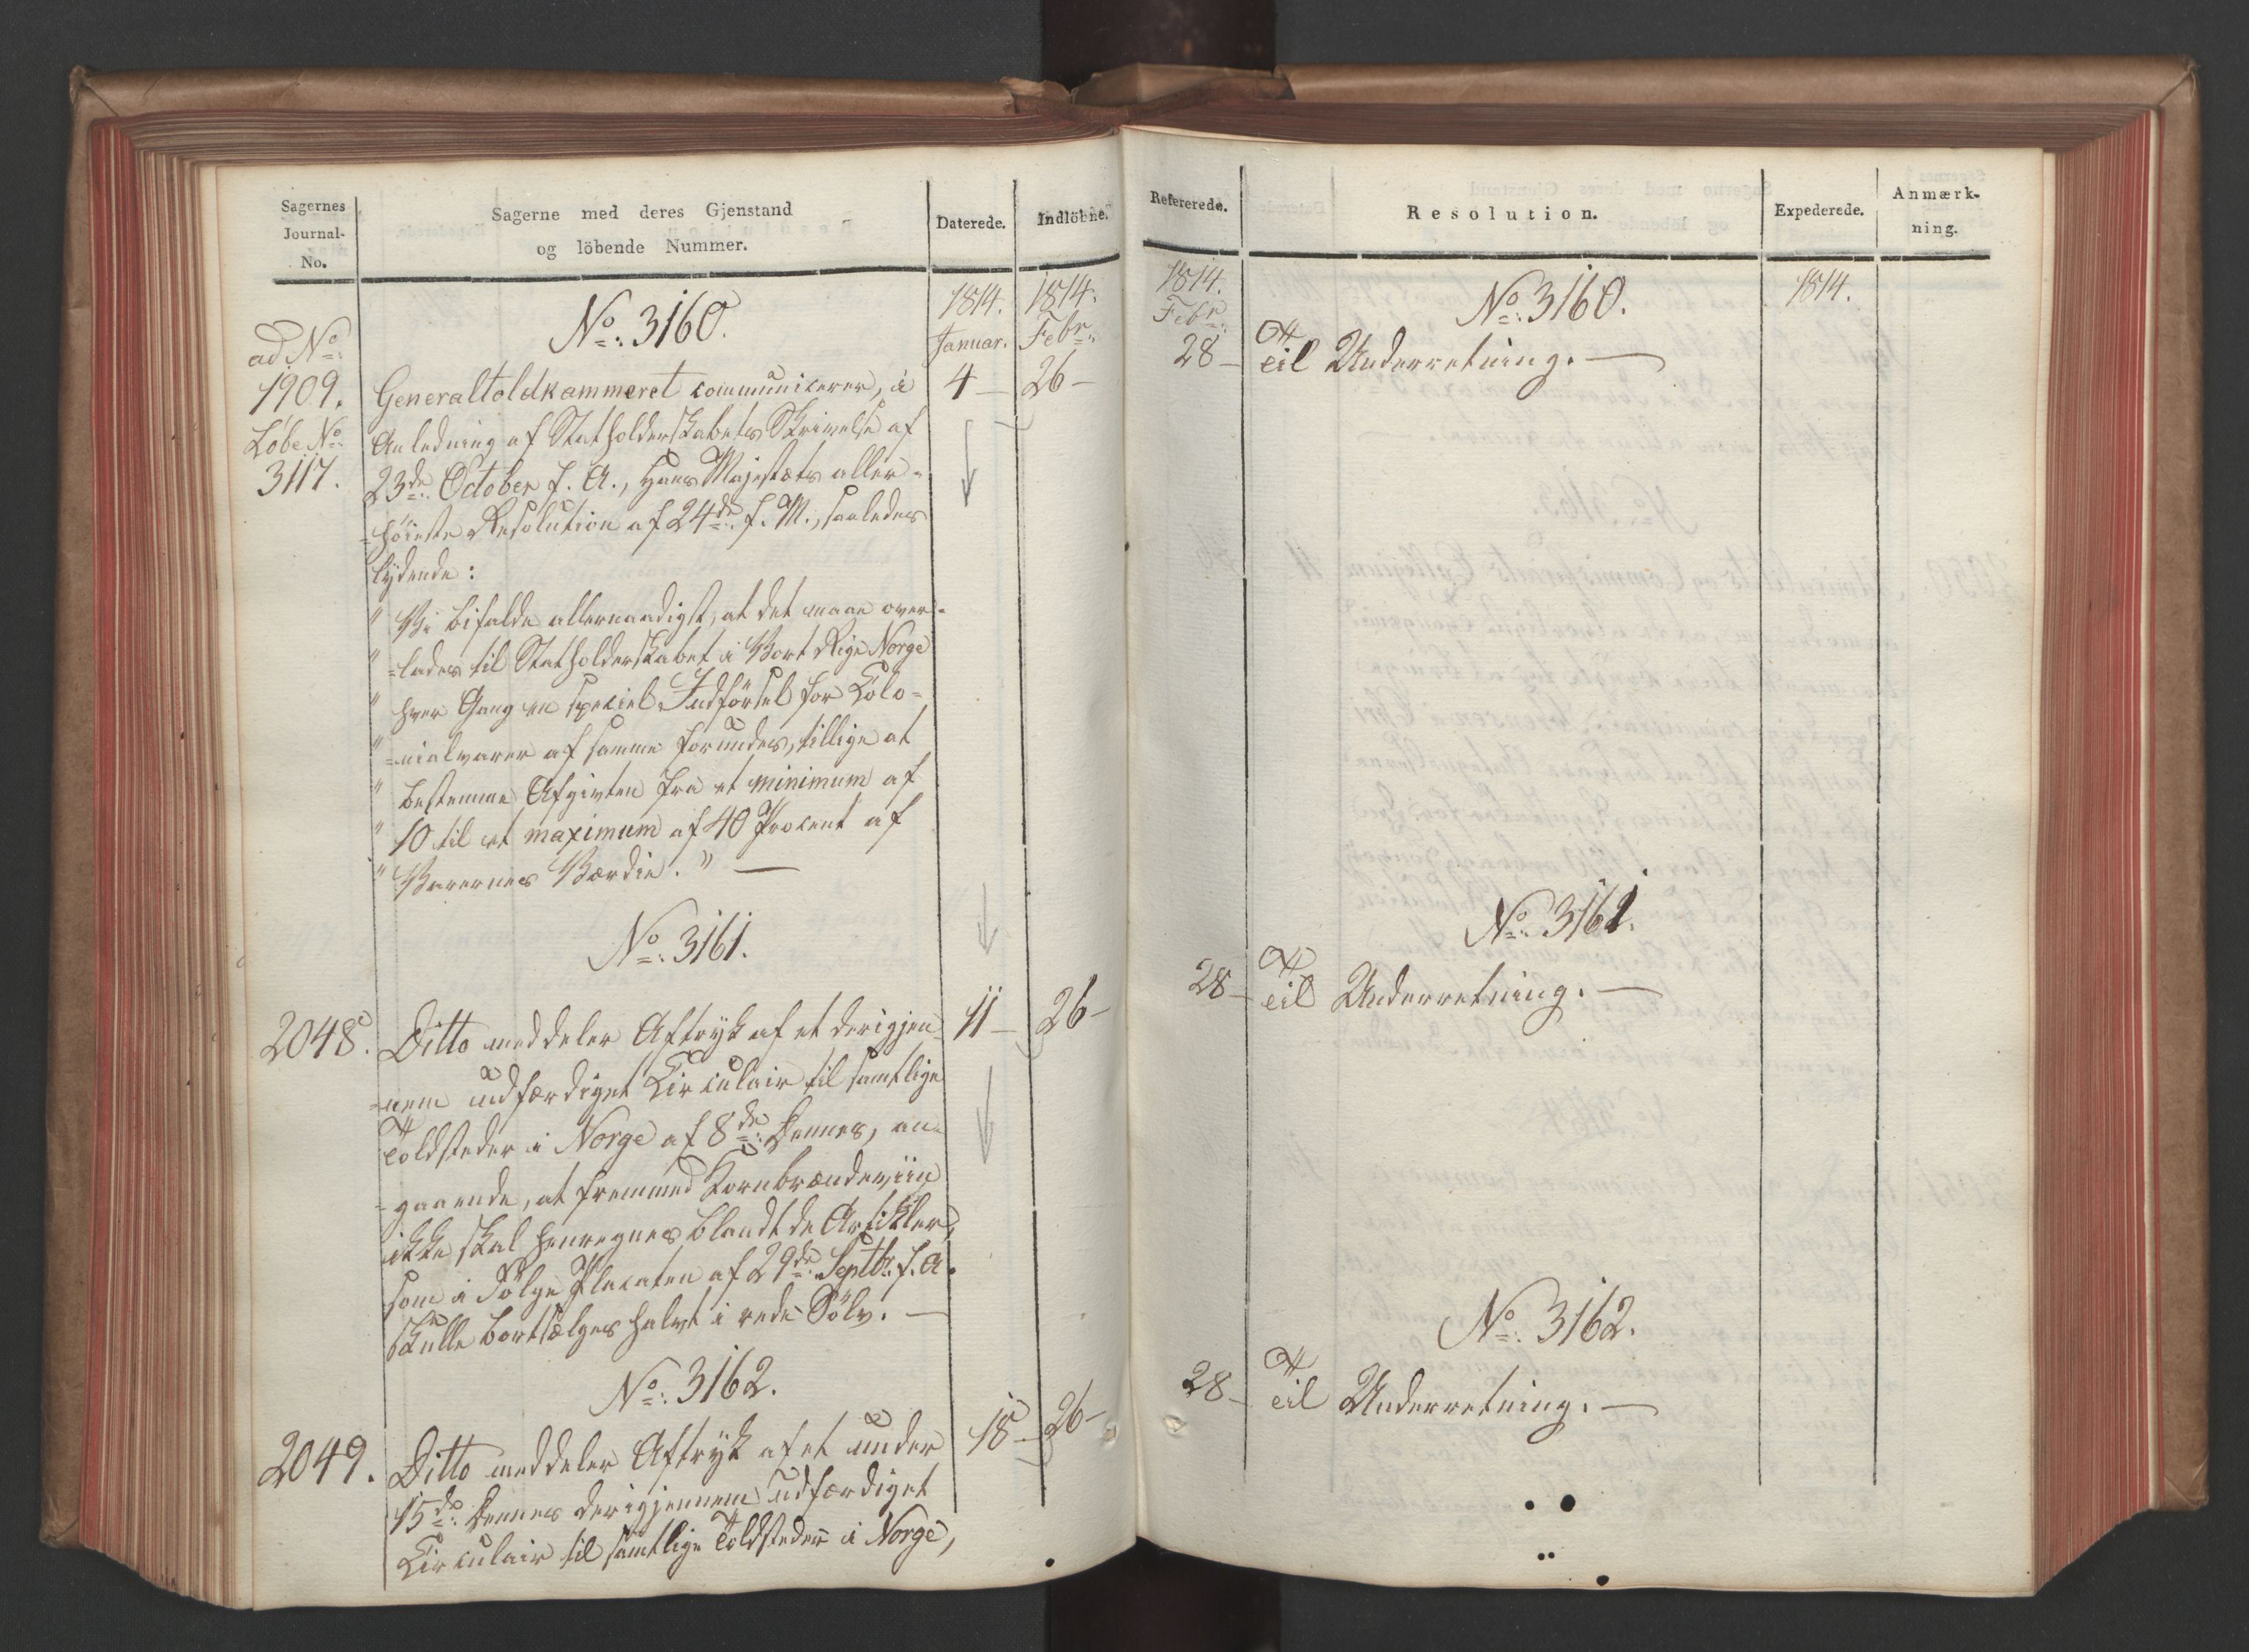 Sagernes
Journal-
No.
Sagerne med deres Gjenstand
og löbende Nummer.
Daterede.
Indlöbne.
No: 3160.
1814.
1814.
Januar.
Febr:
ad No:
1909.
Löbe No:
3117.
Generaltoldkammeret communicerer, i
4 –
26 –
Anledning af Statholderskabets Skrivelse af
23de: October f. A., Hans Majestæts aller=
=höieste Resolution af 24de: f. M., saaledes
lydende:
" Vi bifalde allernaadigst, at det maae over=
" =lades til Statholderskabet i Vort Rige Norge
" hver Gang en speciel Indförsel for Colo=
" =nialvarer af samme forundes, tillige at
" bestemme Afgivten fra et minimum af
" 10 til et maximum af 40 Procent af
" Varernes Værdie." —
No: 3161.
2048.
Ditto meddeler Aftryk af et derigjen=
11 –
26 –
=nem udfærdiget Circulair til samtlige
Toldsteder i Norge af 8de: Dennes, an=
=gaaende, at fremmed Kornbrændeviin
ikke skal henregnes blandt de Artikler,
som i Fölge Placaten af 29de: Septbr. f. A.
skulle bortsælges halvt i rede Sölv. —
No: 3162.
2049.
Ditto meddeler Aftryk af et under
18 –
26 –
15de: Dennes derigjennem udfærdiget
Circulair til samtlige Toldsteder i Norge,
Refererede.
Resolution.
Expederede.
Anmærk-
ning.
1814.
Febr:
No: 3160.
1814.
28 –
Til Underretning. —
No: 3161.
28 –
Til Underretning. —
No: 3162.
28 –
Til Underretning. —